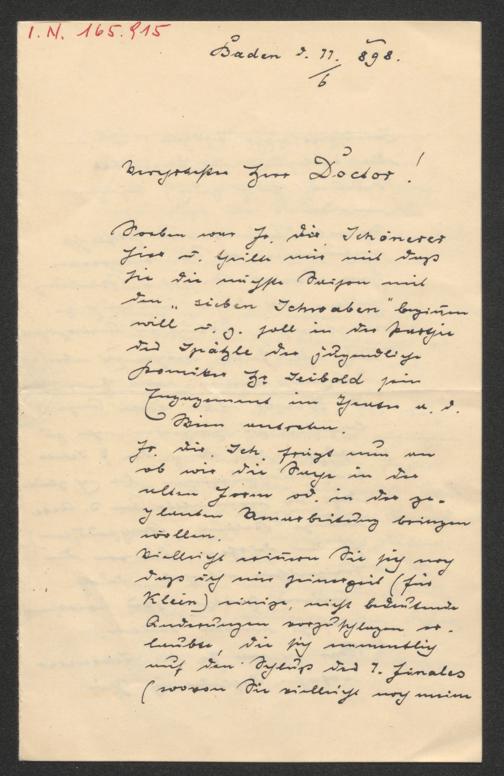 I.N. 165.915
Baden d. 11./6 898.
Verehrtester Herr Doctor!
Soeben war Fr. Dir. Schönerer
hier u. theilte mir mit daß
sie die nächste Saison mit
den „sieben Schwaben" beginnen
will u. z. soll in der Partie
des Spätzle der jugendliche
Komiker Hr Seibold sein
Engagement im Theater a. d.
Wien antreten.
Fr. Dir. Sch. frägt nun an
ob wir die Sache in der
alten Form od. in der ge-
planten Umarbeitung bringen
wollen.
Vielleicht erinnern Sie sich noch
daß ich mir seinerzeit (für
Klein) einige, nicht bedeutende
Änderungen vorzuschlagen er-
laubte, die sich namentlich
auf den Schluß des 1. Finales
(wovon Sie vielleicht noch meine